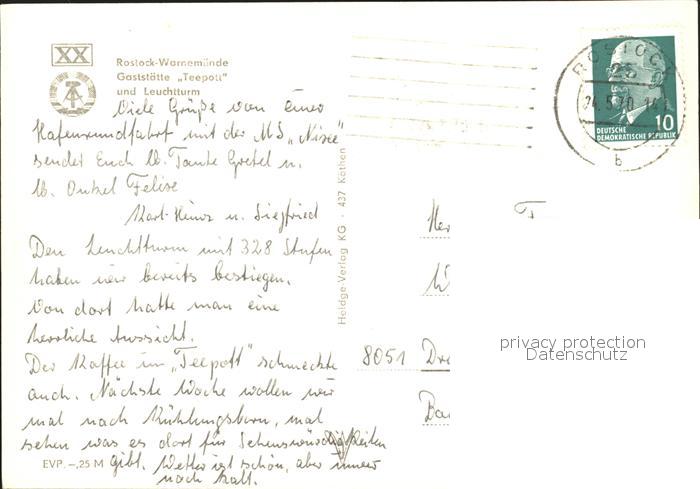 XX
Rostock-Warnemünde
Gaststätte „Teepott"
und Leuchtturm
Viele Grüße von einer
Hafenrundfahrt mit der MS „
sendet Euch lb. Tante Gretel u.
lb. Onkel
Karl-Heinz u. Siegfried
Den Leuchtturm mit 328 Stufen
haben wir bereits bestiegen.
Von dort hatte man eine
herrliche Aussicht.
Der Kaffee im „Teepott" schmeckte
auch. Nächste Woche wollen wir
mal nach Kühlungsborn, mal
sehen was es dort für Sehenswürdigkeiten
gibt. Wetter ist schön, aber immer
noch kalt.
EVP. –,25 M
Heldge-Verlag KG · 437 Köthen
ROSTOCK
24.5.70
b
10
DEUTSCHE
DEMOKRATISCHE REPUBLIK
8051 Dre
privacy protection
Datenschutz